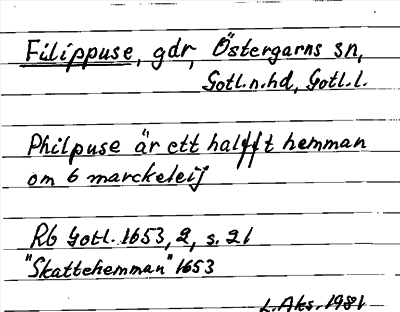 Filippuse, gdr, Östergarns sn,
Gotl.n.hd, Gotl.l.
Philpuse är ett halfft hemman
om 6 marckeleij
Rb Gotl. 1653, 2, s. 21
"Skattehemman" 1653
L.Aks. 1981